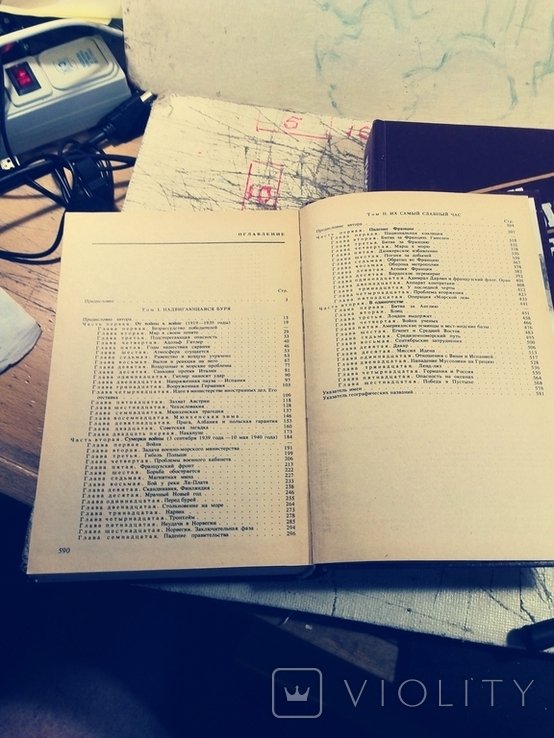 ОГЛАВЛЕНИЕ
Стр.
Предисловие 3
Том I. НАДВИГАЮЩАЯСЯ БУРЯ
Предисловие автора 13
Часть первая. От войны к войне (1919—1939 годы) 19
Глава первая. Безрассудство победителей
Глава третья. Подстерегающая опасность
Глава четвертая. Адольф Гитлер 40
Глава шестая. Атмосфера сгущается 53
Глава седьмая. Равенство в воздухе утрачено
Глава восьмая. Вызов и реакция на него
Глава девятая. Воздушные и морские проблемы
Глава десятая. Санкции против Италии
Глава одиннадцатая. Гитлер наносит удар
Глава двенадцатая. Напряженная пауза — Испания 97
Глава тринадцатая. Вооруженная Германия 103
Глава четырнадцатая. Иден в министерстве иностранных дел. Его
отставка 109
Глава пятнадцатая. Захват Австрии 118
Глава шестнадцатая. Чехословакия 128
Глава семнадцатая. Мюнхенская трагедия 137
Глава восемнадцатая. Мюнхенская зима
Глава девятнадцатая. Прага, Албания и польская гарантия
Глава двадцатая. Советская загадка 160
Глава двадцать первая. Накануне 173
Часть вторая. Сумерки войны (3 сентября 1939 года —10 мая 1940 года) 184
Глава первая. Война
Глава вторая. Задача военно-морского министерства 191
Глава третья. Гибель Польши 199
Глава четвертая. Проблемы военного кабинета 206
Глава пятая. Французский фронт 213
Глава шестая. Борьба обостряется 222
Глава седьмая. Магнитная мина
Глава восьмая. Бой у реки Ла-Плата
Глава девятая. Скандинавия, Финляндия
Глава десятая. Мрачный Новый год 246
Глава одиннадцатая. Перед бурей 255
Глава двенадцатая. Столкновение на море 264
Глава тринадцатая. Нарвик 272
Глава четырнадцатая. Тронхейм 278
Глава пятнадцатая. Неудачи в Норвегии 285
Глава шестнадцатая. Норвегия. Заключительная фаза 294
Глава семнадцатая. Падение правительства 296
590
Том II. ИХ САМЫЙ СЛАВНЫЙ ЧАС
Стр.
Предисловие автора 304
Часть первая. Падение Франции
Глава первая. Национальная коалиция 307
Глава вторая. Битва за Францию. Гамелен
Глава третья. Битва за Францию
Глава четвертая. Марш к морю
Глава пятая. Дюнкеркское избавление
Глава шестая. Погоня за добычей
Глава седьмая. Обратно во Францию
Глава восьмая. Оборона метрополии
Глава девятая. Агония Франции
Глава десятая. Бордоское перемирие
Глава одиннадцатая. Адмирал Дарлан и французский флот. Оран
Глава двенадцатая. Аппарат контратаки
Глава тринадцатая. Проблема вторжения
Глава четырнадцатая. Операция «Морской лев»
Часть вторая. В одиночестве
Глава первая. Битва за Англию
Глава вторая. Блиц
Глава третья. Лондон выдержит
Глава четвертая. Война ученых
Глава пятая. Американские эсминцы и вест-индские базы
Глава шестая. Египет и Средний Восток
Глава седьмая. Средиземноморский путь
Глава восьмая. Сентябрьское затруднение
Глава девятая. Дакар
Глава десятая. Миссия Идена
Глава одиннадцатая. Отношения с Виши и Испанией
Глава двенадцатая. Нападение Муссолини на Грецию
Глава тринадцатая. Ленд-лиз
Глава четырнадцатая. Германия и Россия
Глава пятнадцатая. Опасность на океанах
Глава шестнадцатая. Победа в Пустыне
Указатель имен
Указатель географических названий 581
VIOLITY